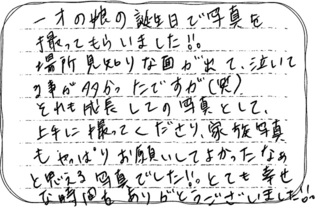 一才の娘の誕生日で写真を
撮ってもらいました!!。
場所見知りな面が出て、泣いて
る事が多かったですが(笑)
それも成長しての写真として、
上手に撮ってくださり、家族写真
もやっぱりお願いしてよかったなぁ
と思える写真でした!!。とても幸せ
な時間をありがとうございました!!。